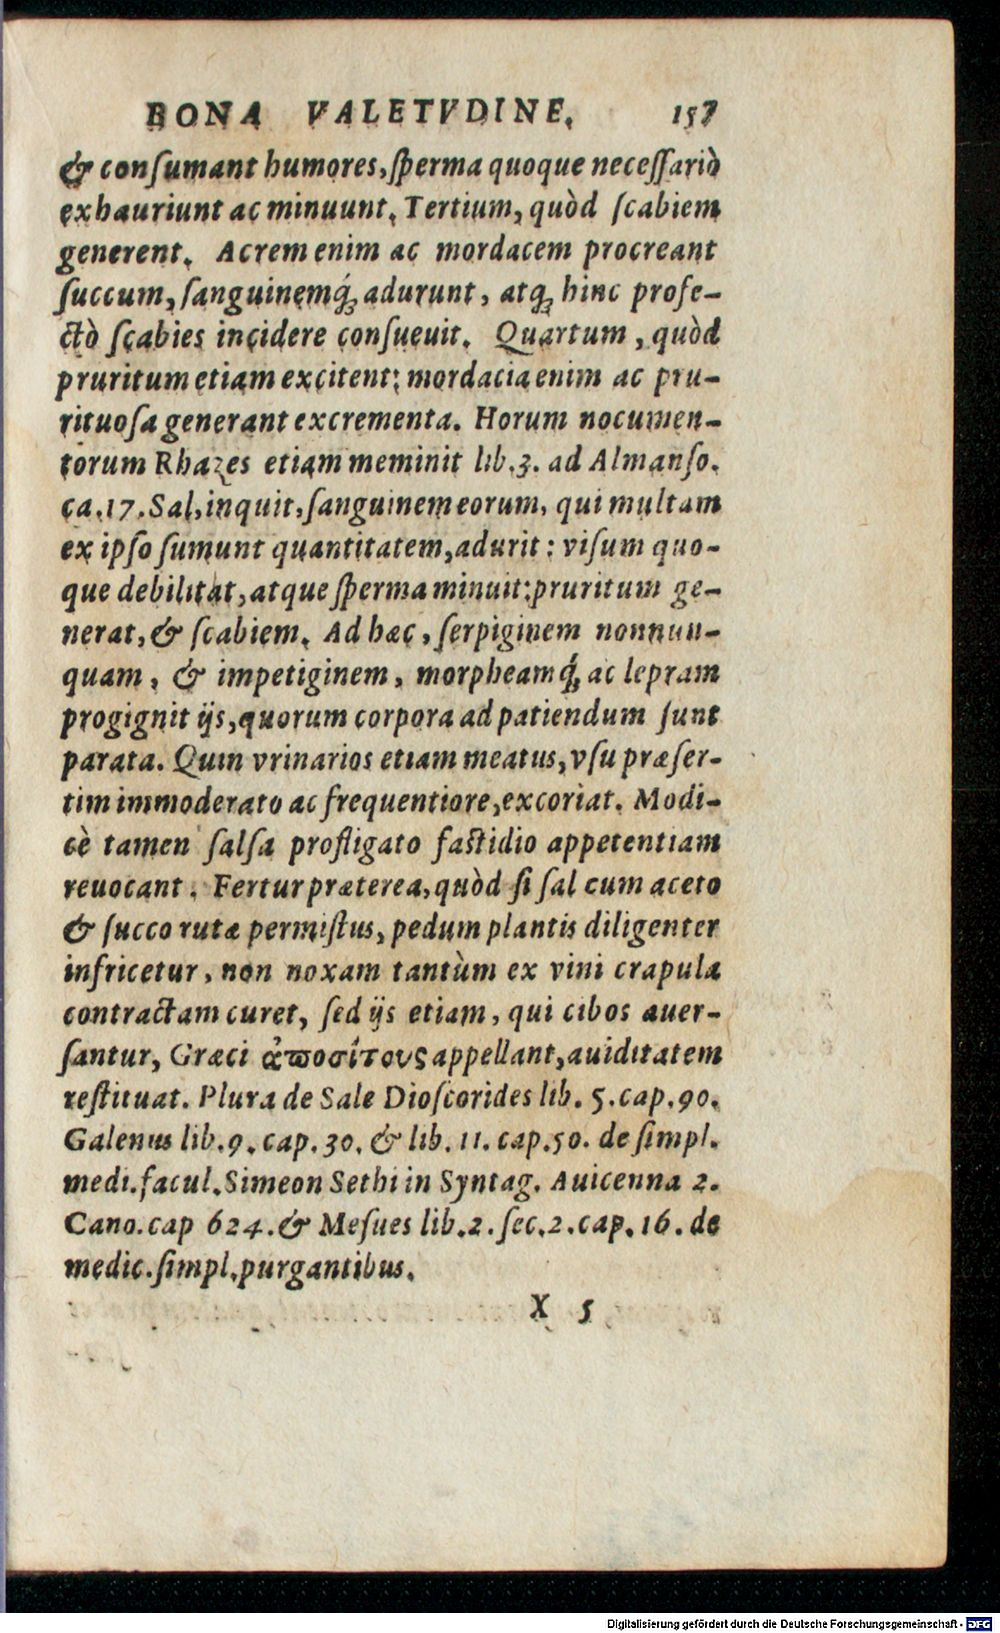 BONA VALETVDINE. 157
& conſumant humores, ſperma quoque neceſſariò
exhauriunt ac minuunt. Tertium, quòd ſcabiem
generent. Acrem enim ac mordacem procreant
ſuccum, ſanguinemq́ꝫ adurunt, atqꝫ hinc profe-
ctò ſcabies incidere conſueuit. Quartum, quòd
pruritum etiam excitent: mordacia enim ac pru-
rituoſa generant excrementa. Horum nocumen-
torum Rhazes etiam meminit lib.3. ad Almanſo.
ca.17. Sal, inquit, ſanguinem eorum, qui multam
ex ipſo ſumunt quantitatem, adurit: viſum quo-
que debilitat, atque ſperma minuit: pruritum ge-
nerat, & ſcabiem. Ad hæc, ſerpiginem nonnun-
quam, & impetiginem, morpheamq́ꝫ ac lepram
progignit ijs, quorum corpora ad patiendum ſunt
parata. Quin vrinarios etiam meatus, vſu præſer-
tim immoderato ac frequentiore, excoriat. Modi-
cè tamen ſalſa profligato faſtidio appetentiam
reuocant. Fertur præterea, quòd ſi ſal cum aceto
& ſucco rutæ permiſtus, pedum plantis diligenter
infricetur, non noxam tantùm ex vini crapula
contractam curet, ſed ijs etiam, qui cibos auer-
ſantur, Græci ἀποσίτους appellant, auiditatem
reſtituat. Plura de Sale Dioſcorides lib. 5. cap. 90.
Galenus lib.9. cap.30. & lib. 11. cap.50. de ſimpl.
medi. facul. Simeon Sethi in Syntag. Auicenna 2.
Cano. cap 624. & Meſues lib.2. ſec.2. cap. 16. de
medic. ſimpl. purgantibus.
X 5
Digitalisierung gefördert durch die Deutsche Forschungsgemeinschaft - DFG